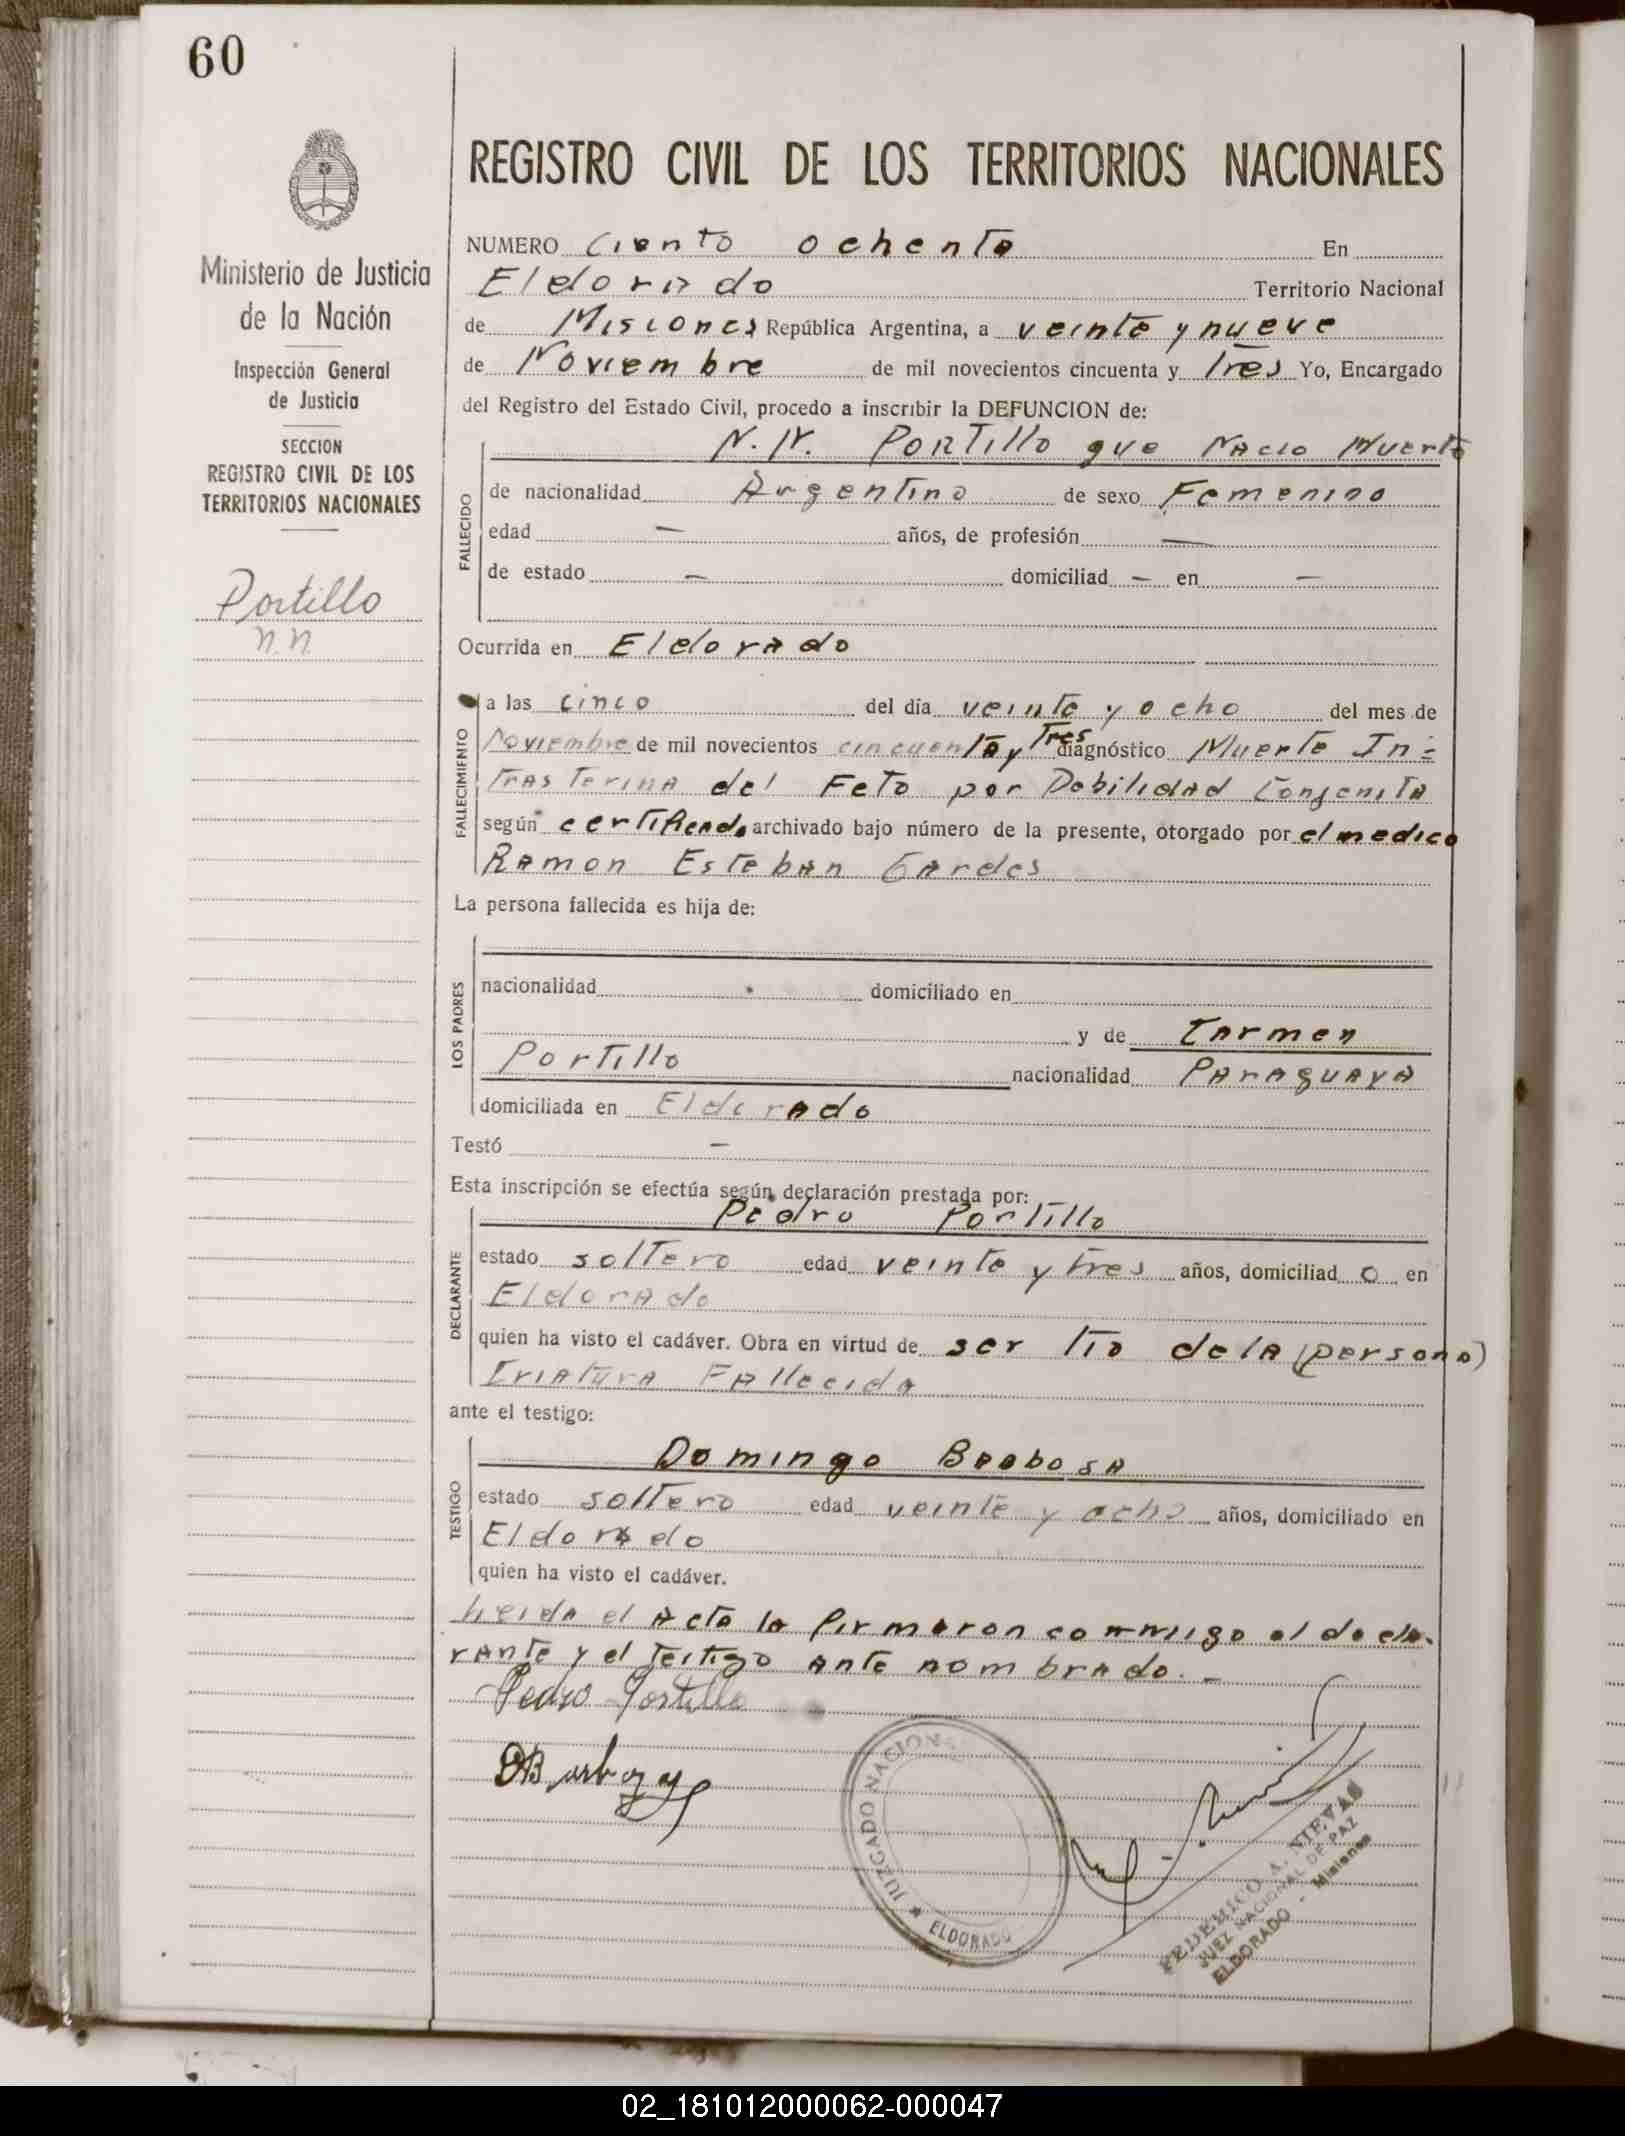 60
REGISTRO CIVIL DE LOS TERRITORIOS NACIONALES
Ministerio de Justicia
de la Nación
Inspección General
de Justicia
SECCION
REGISTRO CIVIL DE LOS
TERRITORIOS NACIONALES
Portillo
N.N.
NUMERO Ciento ochenta En
Eldorado Territorio Nacional
de Misiones República Argentina, a veinte y nueve
de Noviembre de mil novecientos cincuenta y Tres Yo, Encargado
del Registro del Estado Civil, procedo a inscribir la DEFUNCION de:
N.N. Portillo que Nacio Muerto
FALLECIDO
de nacionalidad Argentina de sexo Femenino
edad — años, de profesión —
de estado — domiciliad — en —
Ocurrida en Eldorado
FALLECIMIENTO
a las cinco del día veinte y ocho del mes de
Noviembre de mil novecientos cincuenta y Tres diagnóstico Muerte In-
tras Terina del Feto por Debilidad Congenita
según certificado archivado bajo número de la presente, otorgado por el medico
Ramon Esteban Gardes
La persona fallecida es hija de:
LOS PADRES
nacionalidad domiciliado en
y de Carmen
Portillo nacionalidad Paraguaya
domiciliada en Eldorado
Testó —
Esta inscripción se efectúa según declaración prestada por:
Pedro Portillo
DECLARANTE
estado soltero edad veinte y tres años, domiciliad o en
Eldorado
quien ha visto el cadáver. Obra en virtud de ser tio de la (persona)
Criatura Fallecida
ante el testigo:
Domingo Barbosa
TESTIGO
estado soltero edad veinte y ocho años, domiciliado en
Eldorado
quien ha visto el cadáver.
Leida el Acta la firmaron conmigo el decla-
rante y el Testigo ante nombrado. —
Pedro Portillo
JUZGADO NACIONAL
ELDORADO
FEDERICO A. NIEVAS
JUEZ NACIONAL DE PAZ
ELDORADO - Misiones
02_181012000062-000047